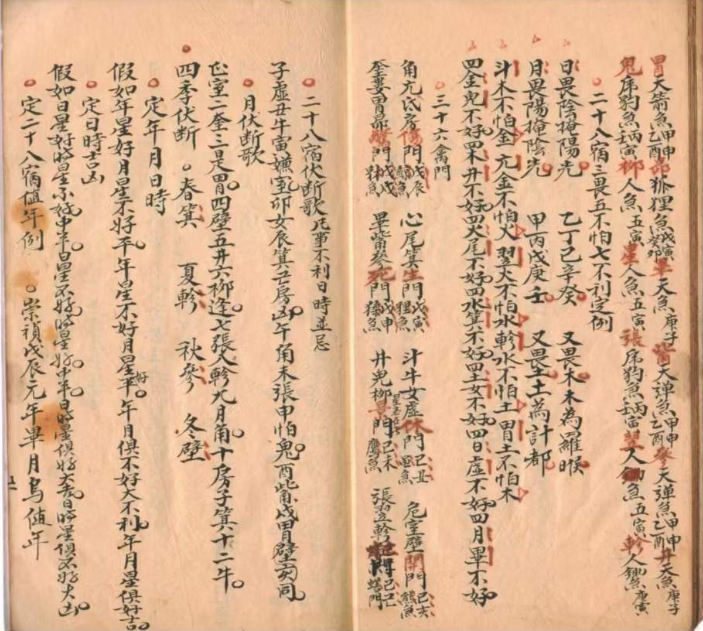 胃天箭魚甲申乙酉昴狐狸魚戊寅癸卯畢天魚庚子觜天弹魚甲申乙酉參天弹魚甲申乙酉井天魚庚子
鬼庠狗魚丙寅柳人魚五寅星人魚五寅張庠狗魚丙寅翌人魚五寅軫人魚庚寅
二十八宿三畏五不怕七不利定例
日畏陰掩陽光 乙丁己辛癸 又畏木木為羅㬋
月畏陽掩陰光 甲丙戊庚壬 又畏土土為計都
斗木不怕金 亢金不怕火 翌火不怕水 軫水不怕土 胃土不怕木
四金鬼不好四木井不好四火尾不好四水箕不好四土女不好四日虛不好四月畢不好
三十六禽門
角亢氐房傷門戊辰 心尾箕生門戊寅 斗牛女虛休門己丑 危室壁開門己亥
奎婁胃昴門戊戌 畢觜參死門戊申 井鬼柳景門己未 張翌軫門己巳
二十八宿伏断歌凡事不利日時並忌
子虛丑斗寅嫌室卯女辰箕巳房凶午角未張申怕鬼酉觜戌胃壁亥同
月伏断歌
正室二奎三是胃四壁五井六柳逢七張八軫九月角十房子箕十二牛
四季伏断 春箕 夏軫 秋參 冬壁
定年月日時
假如年星好月星不好平年星不好月星好平年月俱不好大不利年月星俱好吉
定日時吉凶
假如日星好時星不好中平日星不好時星好中平日時星俱好大吉日時星俱不好大凶
定二十八宿値年例 崇禎戊辰元年畢月烏值年